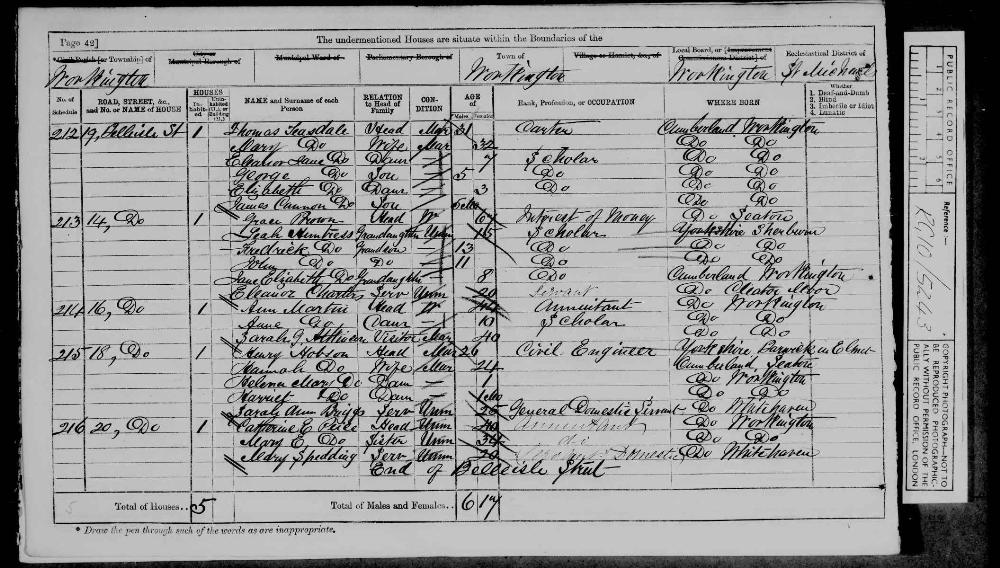 Page 42]
The undermentioned Houses are situate within the Boundaries of the
*Civil Parish [or Township] of
Workington
City or Municipal Borough of
Municipal Ward of
Parliamentary Borough of
Town of
Workington
Village or Hamlet, &c., of
Local Board, or [Improvement Commissioners District] of
Workington
Ecclesiastical District of
St Michael
No. of Schedule
ROAD, STREET, &c., and No. or NAME of HOUSE
HOUSES
Inhabited
Uninhabited (U.), or Building (B.)
NAME and Surname of each Person
RELATION to Head of Family
CONDITION
AGE of
Males
Females
Rank, Profession, or OCCUPATION
WHERE BORN
Whether
1. Deaf-and-Dumb
2. Blind
3. Imbecile or Idiot
4. Lunatic
212 19, Bellisle St 1 Thomas Teasdale Head Mar 31 Carter Cumberland Workington
Mary Do Wife Mar 32 Do Do
Eleanor Jane Do Daur 7 Scholar Do Do
George Do Son 5 Do Do Do
Elizabeth Do Daur 3 Do Do
James Cannon Do Son 5 Mo Do Do
213 14, Do 1 Grace Brown Head W 67 Interest of Money Do Seaton
Leah Huntress Grandaughter Unm 15 Scholar Yorkshire Sherburn
Fredrick Do Grandson 13 Do Do Do
John Do Do 11 Do Do Do
Jane Elizabeth Do Grandaughter 8 Do Cumberland Workington
Eleanor Charters Serv Unm 20 Servant Do Cleator Moor
214 16, Do 1 Ann Martin Head W 44 Annuitant Do Workington
Anne Do Daur 10 Scholar Do Do
Sarah J Atkinson Visitor Mar 40 Do Do
215 18, Do 1 Henry Hobson Head Mar 26 Civil Engineer Yorkshire, Barwick in Elmet
Hannah Do Wife Mar 24 Cumberland, Seaton
Helena Mary Do Daur 1 Do Workington
Harriet Do Daur 1 Mo Do Do
Sarah Ann Briggs Serv Unm 26 General Domestic Servant Do Whitehaven
216 20, Do 1 Catherine E Head Unm 40 Annuitant Do Workington
Mary E Do Sister Unm 34 Do Do Do
Mary Spedding Serv Unm 20 Domestic Do Whitehaven
End of Bellisle Street
Total of Houses.. 5
Total of Males and Females.. 6 17
* Draw the pen through such of the words as are inappropriate.
PUBLIC RECORD OFFICE
1 2 3 4 5 6
Reference:-
RG10/5243
COPYRIGHT PHOTOGRAPH-NOT TO
BE REPRODUCED PHOTOGRAPHIC-
ALLY WITHOUT PERMISSION OF THE
PUBLIC RECORD OFFICE, LONDON